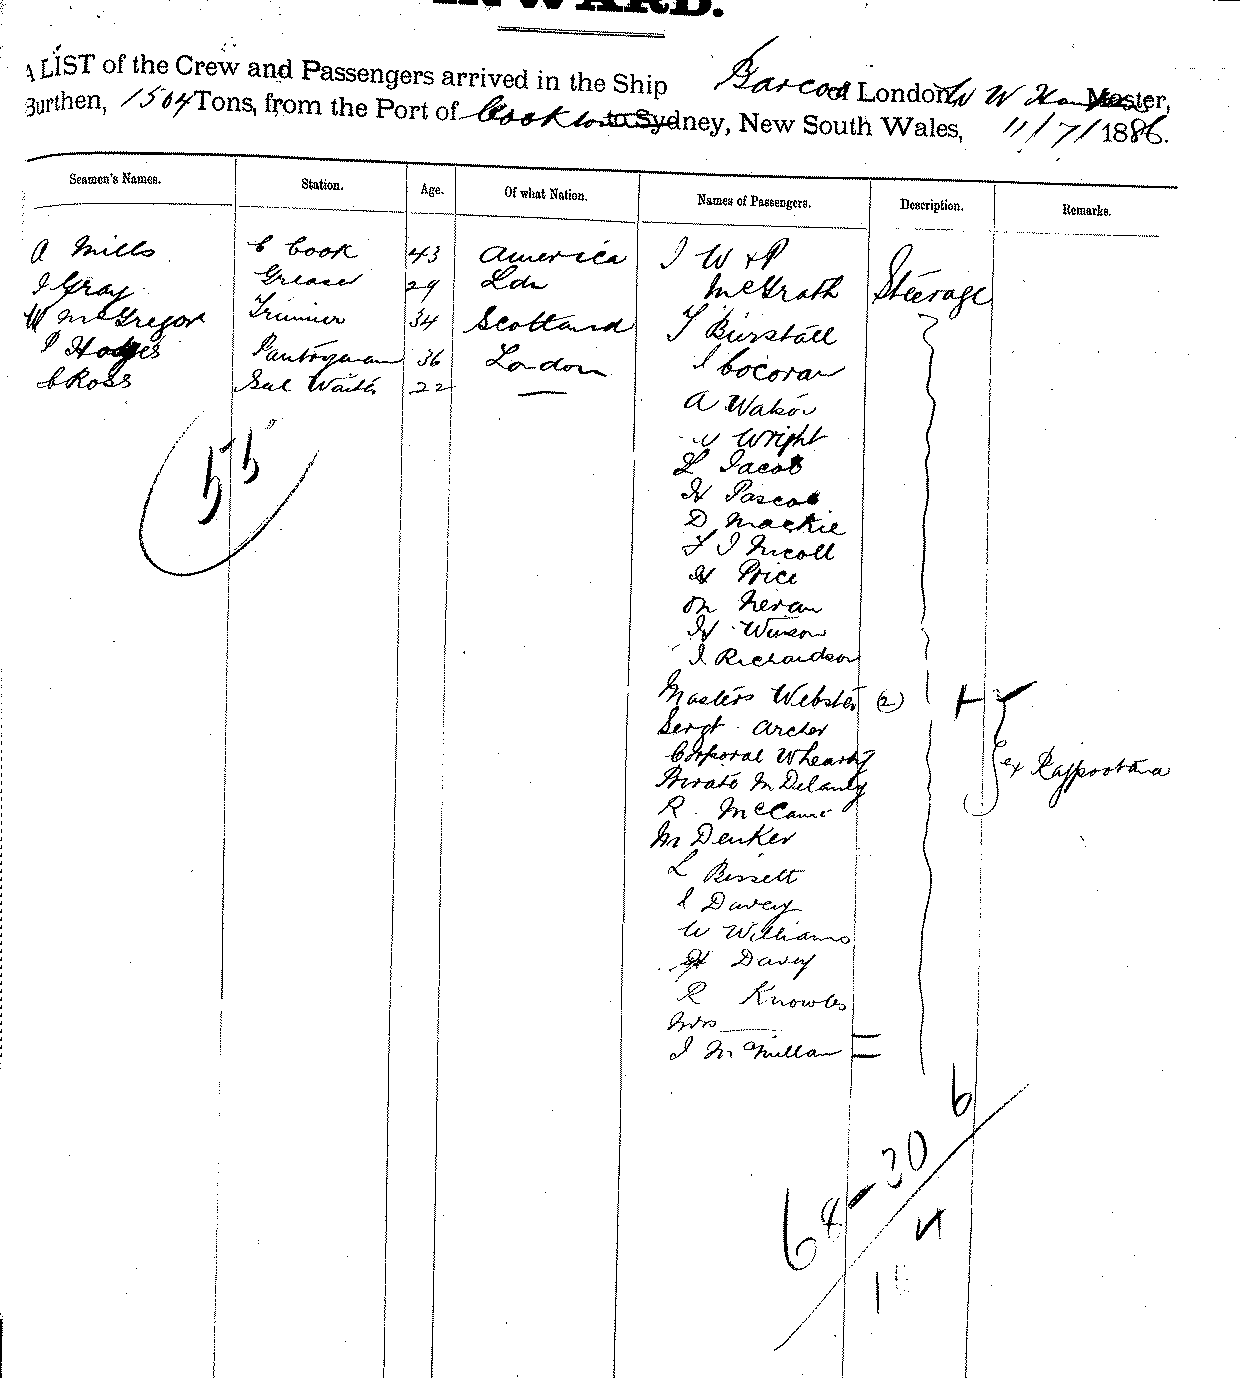 INWARD.
A LIST of the Crew and Passengers arrived in the Ship Barcoo of London W W Master,
Burthen, 1504 Tons, from the Port of Cooktown to Sydney, New South Wales, 11/7/1886.
Seamen's Names. Station. Age. Of what Nation. Names of Passengers. Description. Remarks.
A Mills C Cook 43 America J W & P
J Gray Greaser 29 Ldn McGrath Steerage
W McGregor Trimmer 34 Scotland T Burstall
P Hodges Pantryman 36 London J Cocoran
C Ross Sal Waiter 22 — A Watson
55
Wright
L Jacob
H Pascoe
D Mackie
F J Nicoll
H Price
M Neran
H Winson
J Richardson
Masters Webster (2)
Sergt Archer
Corporal Whearty
ex Rajpootana
Private M Delaney
R McCann
M Denker
L Bissett
J Davey
W Williams
H Davey
R Knowles
Mrs —
J McMillan
6
68 - 30
4